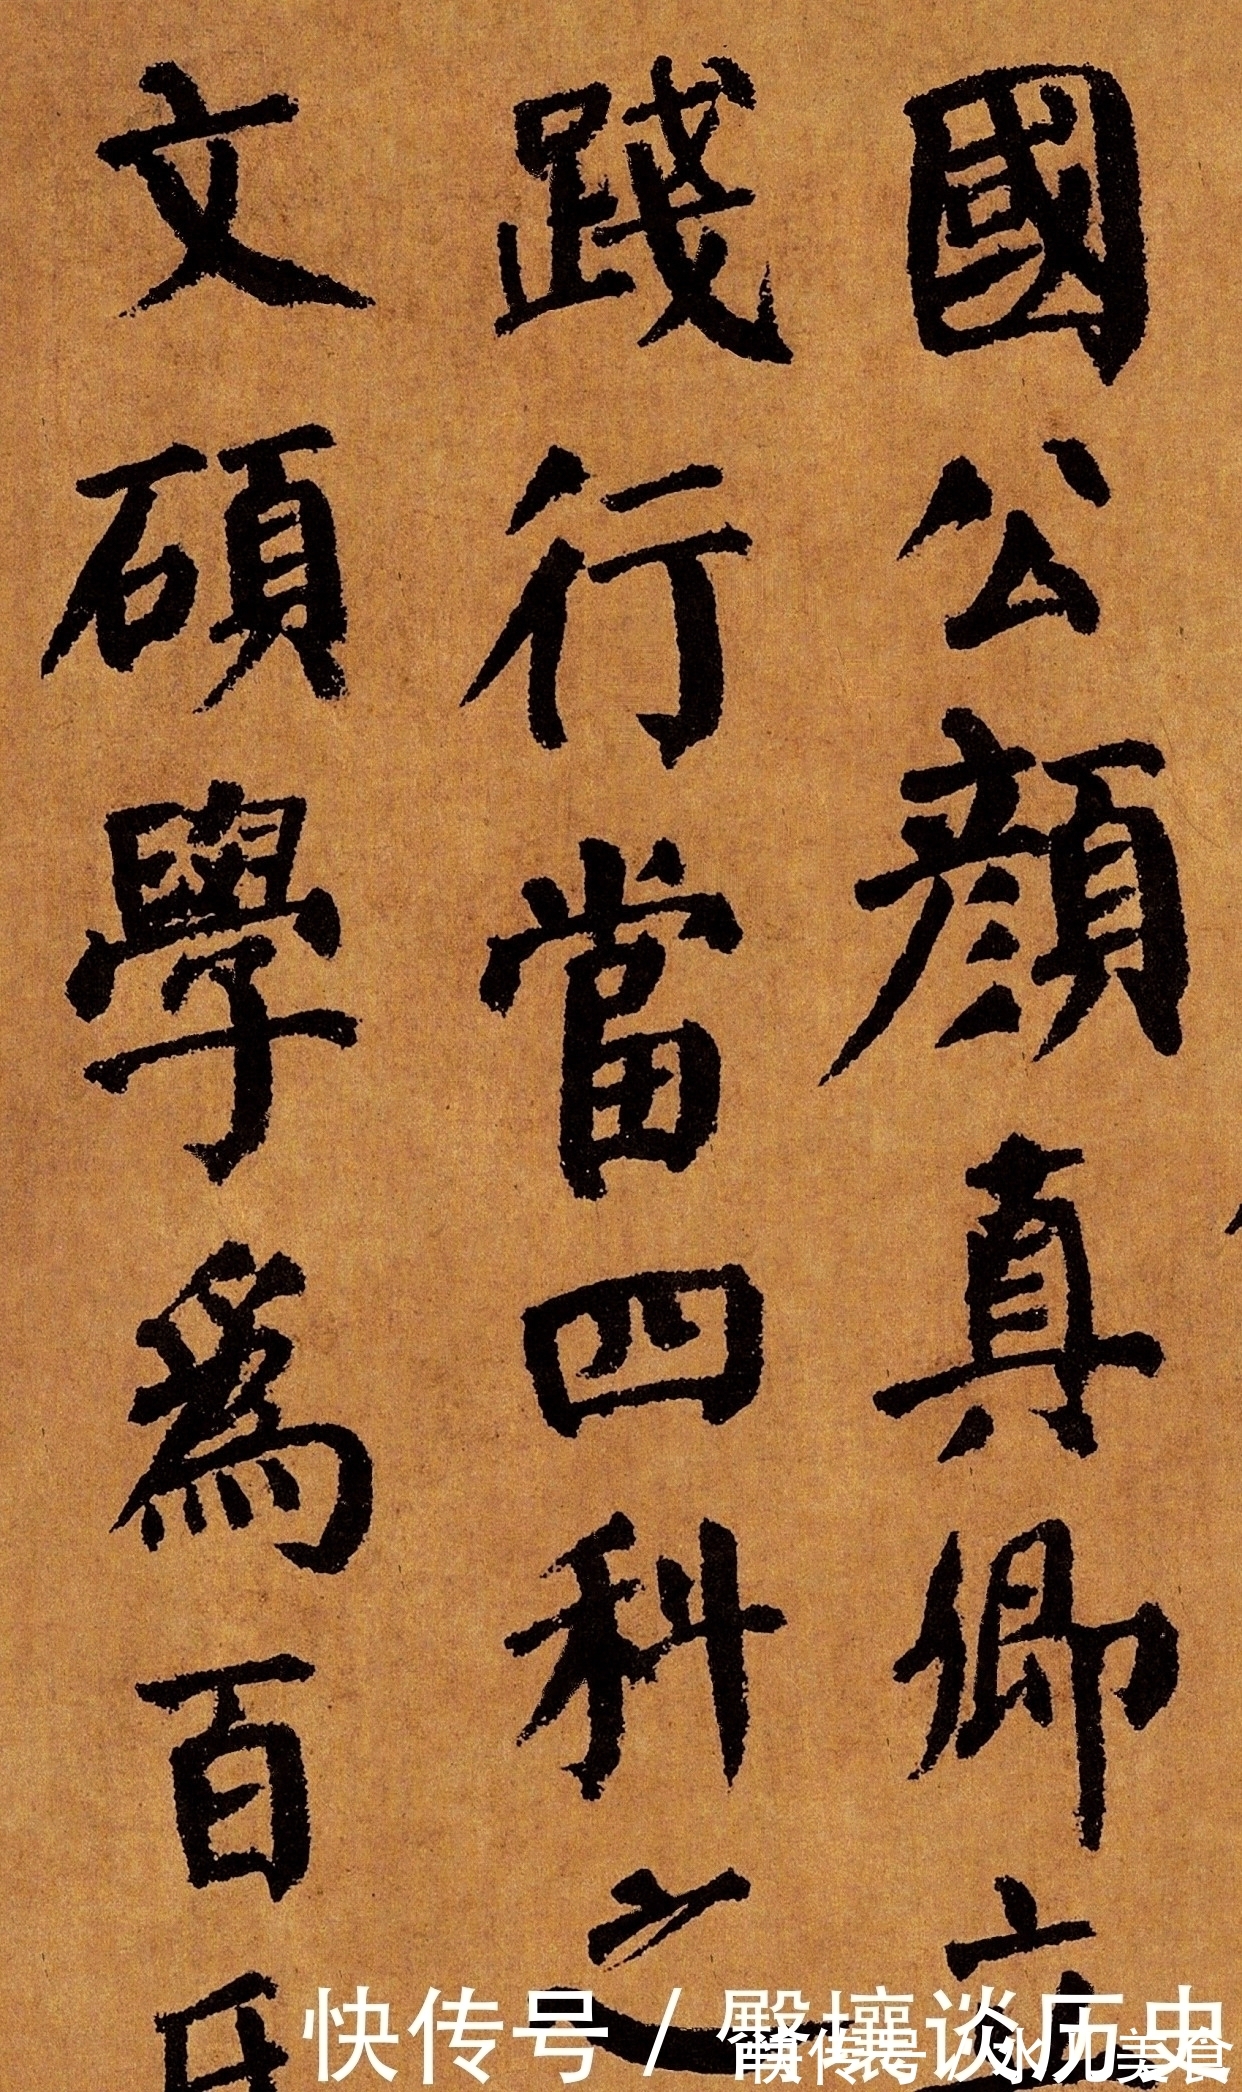 國公顏真卿立
踐行當四科之
文碩學爲百氏
快传号/臀攘谈历史